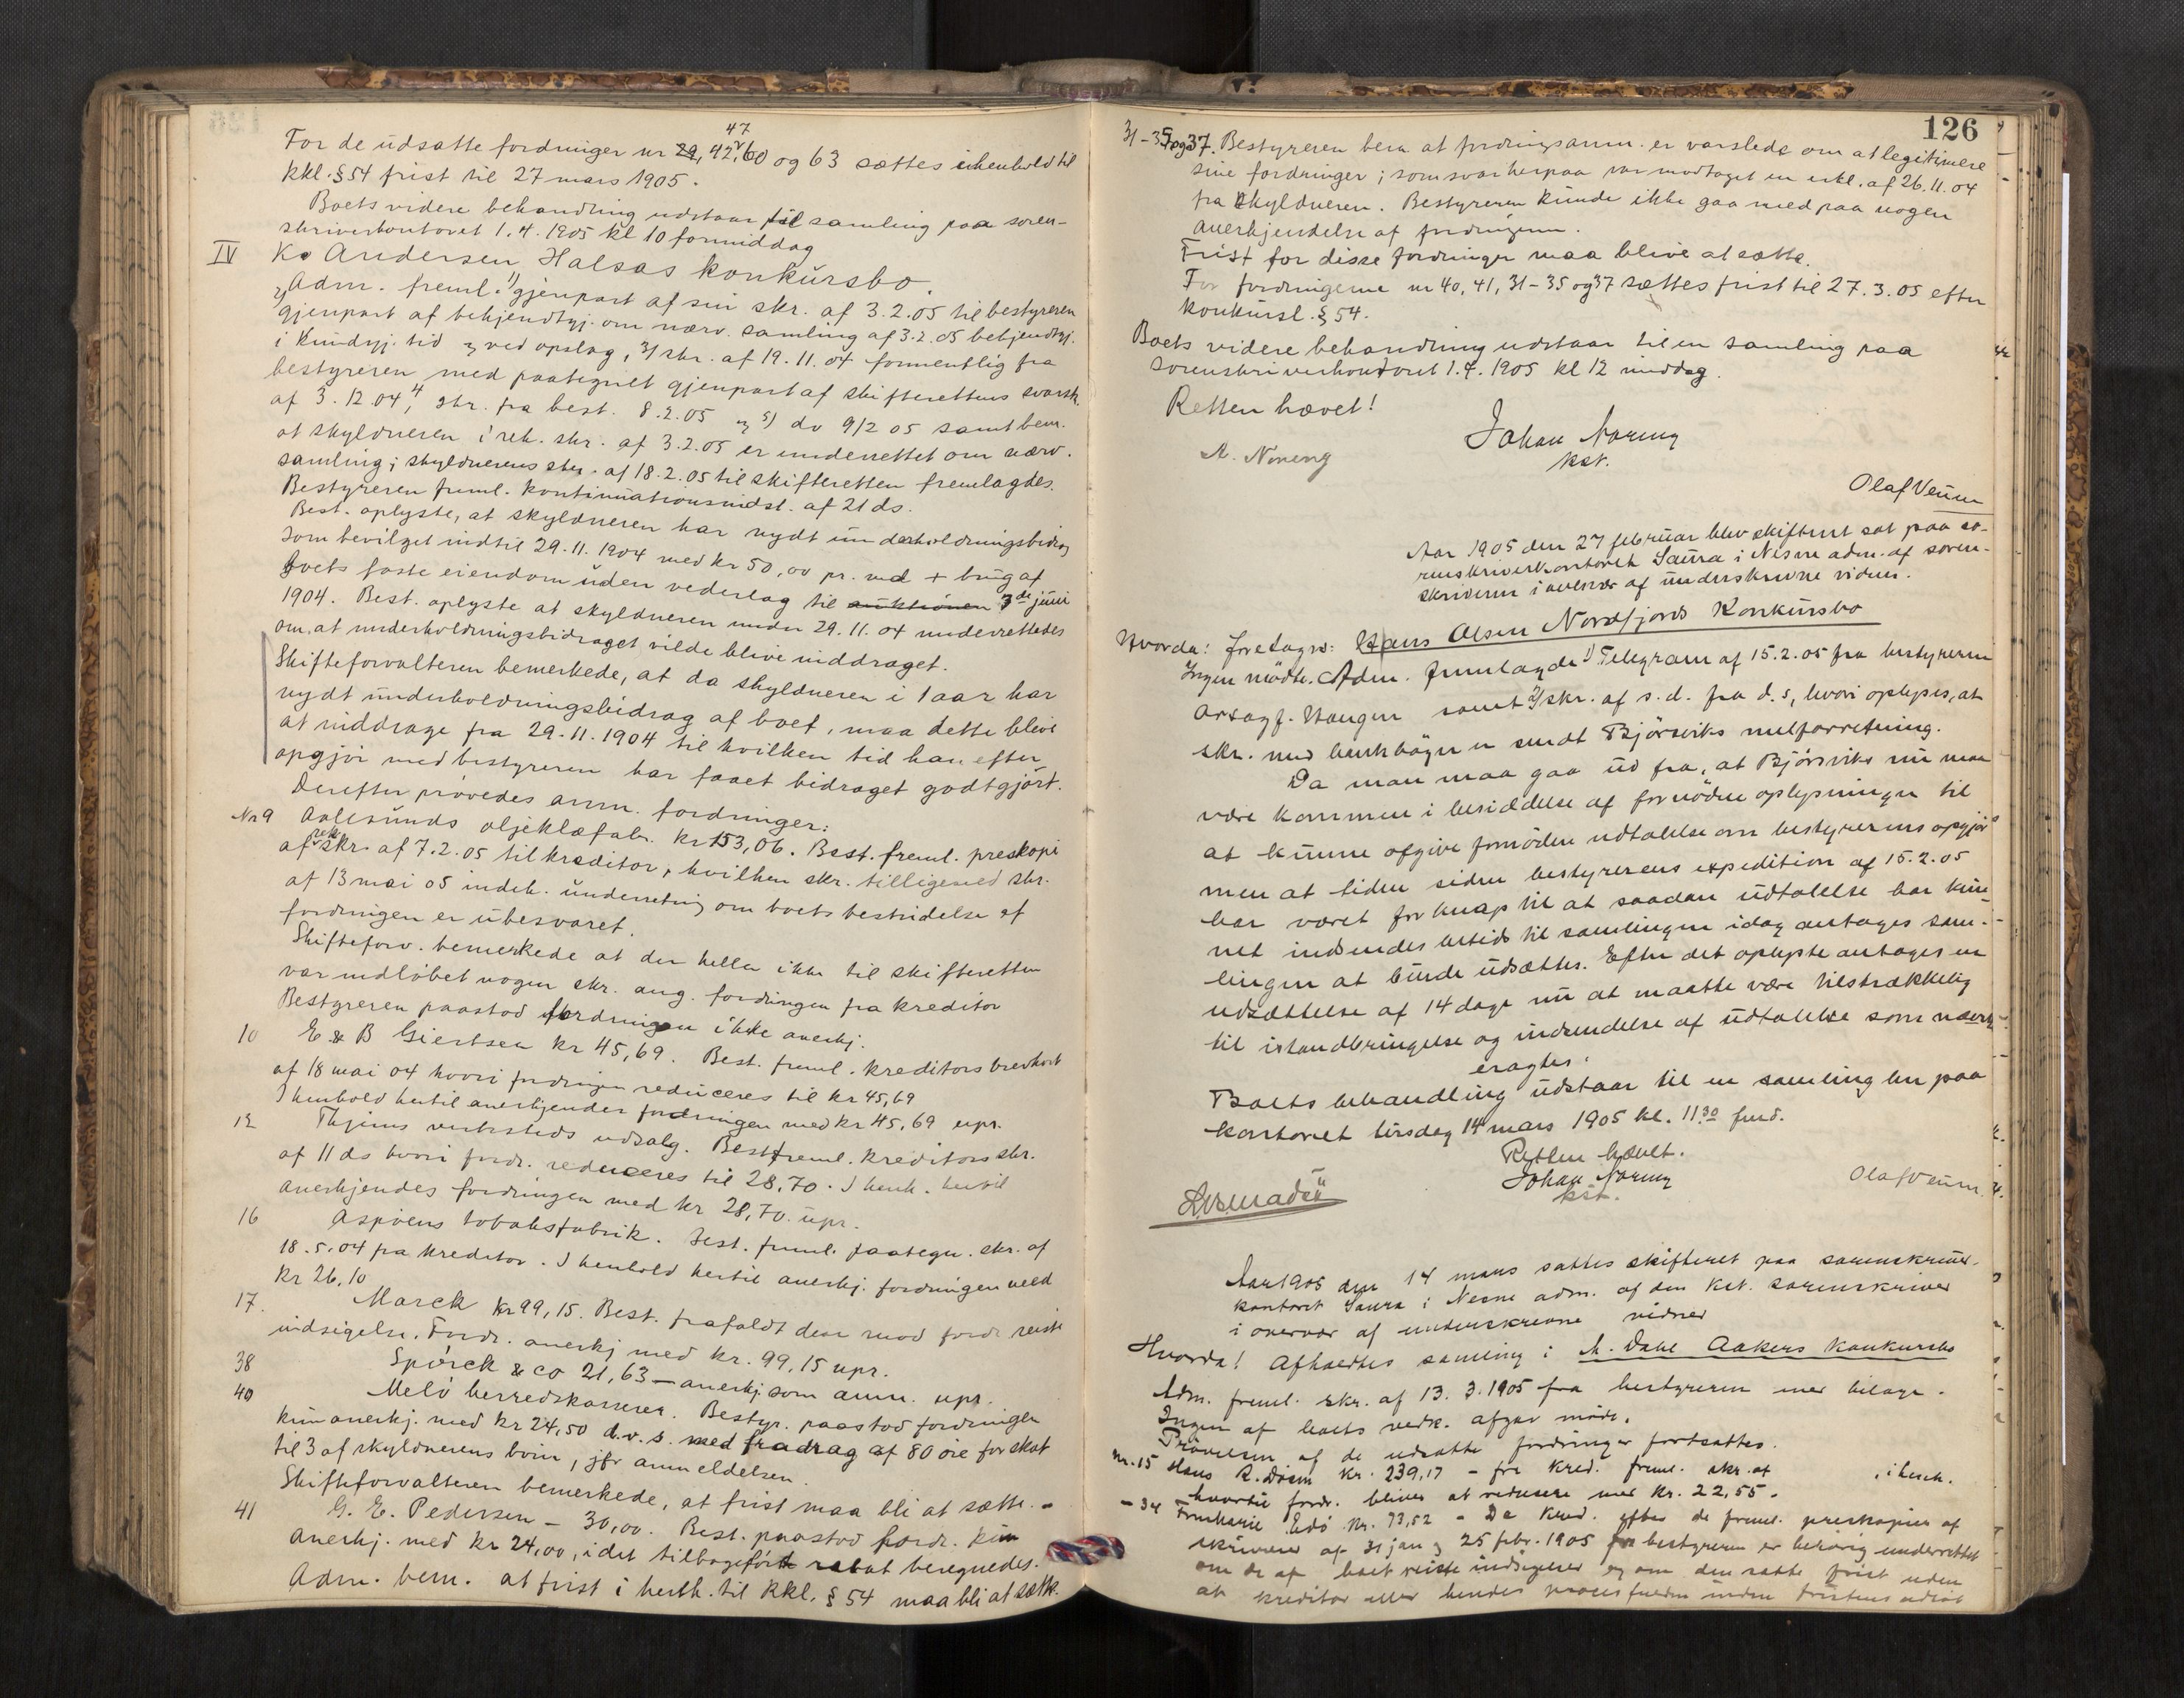 For de udsatte fordringer nr 29, 42, 47, 60 og 63 sættes i henhold til
kkl. § 54 frist til 27 mars 1905.
Boets videre behandling udstaar til samling paa soren-
skriverkontoret 1.4.1905 kl 10 formiddag
IV K. Andersen Halsas konkursbo.
Adm. freml. 1) gjenpart af sin skr. af 3.2.05 til bestyreren
2) gjenpart af bekjendtgj. om nærv. samling af 3.2.05 bekjendtgj.
i Kundgj. tid & ved opslag, 3) skr. af 19.11.04 formentlig fra
bestyreren med paategnet gjenpart af skifterettens svarsk.
af 3.12.04, 4) skr. fra best. 8.2.05 & 5) do 9/2 05 samt bem.
at skyldneren i rek. skr. af 3.2.05 er underrettet om nærv.
samling; skyldnerens skr. af 18.2.05 til skifteretten fremlagdes.
Bestyreren freml. kontinuationsindst. af 21 ds.
Best. oplyste, at skyldneren har nydt underholdningsbidrag
som bevilget indtil 29.11.1904 med kr 50,00 pr. md + brug af
boets faste eiendom uden vederlag til auktionen 3de juni
1904. Best. oplyste at skyldneren under 29.11.04 underrettedes
om, at underholdningsbidraget vilde blive inddraget.
Skifteforvalteren bemerkede, at da skyldneren i 1 aar har
nydt underholdningsbidrag af boet, maa dette blive
at inddrage fra 29.11.1904 til hvilken tid han efter
opgjør med bestyreren har faaet bidraget godtgjort.
Derefter prøvedes anm. fordringer:
Nr 9 Aalesunds oljeklæfabr. kr 153,06. Best. freml. preskopi
af rek. skr. af 7.2.05 til kreditor, hvilken skr. tilligemed skr.
af 13 mai 05 indeh. underretning om boets bestridelse af
fordringen er ubesvaret.
Skifteforv. bemerkede at der heller ikke til skifteretten
var indløbet nogen skr. ang. fordringen fra kreditor
Bestyreren paastod fordringen ikke anerkj.
10 E & B Giertsen kr 45,69. Best. freml. kreditors brevkort
af 18 mai 04 hvori fordringen reduceres til kr 45,69
I henhold hertil anerkjendes fordringen med kr 45,69 upr.
12 Thjems verksteds udsalg. Best freml. kreditors skr.
af 11 ds hvori fordr. reduceres til 28,70. I henh. hertil
anerkjendes fordringen med kr 28,70 upr.
16 Aspøens tobaksfabrik. Best. freml. paategn. skr. af
18.5.04 fra kreditor. I henhold hertil anerkj. fordringen med
kr 26,10
17. Marck kr 99,15. Best. frafaldt den mod fordr. reiste
indsigelse. Fordr. anerkj med kr. 99,15 upr.
38 Spørck & co 21,63 — anerkj. som anm. upr.
40 Melø herredskasserer. Bestyr. paastod fordringen
kun anerkj. med kr 24,50 d.v.s. med fradrag af 80 øre for skat
til 3 af skyldnerens børn, jfr anmeldelsen
Skifteforvalteren bemerkede, at frist maa bli at sætte. –
41 G. E. Pedersen – 30,00. Best. paastod fordr. kun
anerkj. med kr 24,00, idet tilbageført rabat beregnedes.
Adm. bem. at frist i henh. til kkl. § 54 maa bli at sætte.
126
31 – 35 og 37. Bestyreren bem at fordringsanm. er varslede om at legitimere
sine fordringer; som svar herpaa var modtaget en erkl. af 26.11.04
fra skyldneren. Bestyreren kunde ikke gaa med paa nogen
anerkjendelse af fordringerne.
Frist for disse fordringer maa blive at sætte.
For fordringerne nr 40, 41, 31 – 35 og 37 sættes frist til 27.3.05 efter
konkursl. § 54.
Boets videre behandling udstaar til en samling paa
sorenskriverkontoret 1.4.1905 kl 12 middag.
Retten hævet!
Johan Noreng
kst.
A. Noreng
Olaf Venn
Aar 1905 den 27 februar blev skifteret sat paa so-
renskriverkontoret Saura i Nesne adm. af soren-
skriveren i overvær af underskrevne vidner.
Hvorda: foretages: Hans Olsen Nordfjords Konkursbo
Ingen mødte. Adm. fremlagde 1) Telegram af 15.2.05 fra bestyreren
Haugen samt 2) skr. af s.d. fra d.s, hvori oplyses, at
skr. med er sendt Bjørsviks
Da man maa gaa ud fra, at Bjørsvik nu maa
være kommen i besiddelse af fornødne oplysninger til
at kunne afgive fornøden udtalelse om bestyrerens opgjør
men at tiden siden bestyrerens expedition af 15.2.05
har været for knap til at saadan udtalelse har kun-
net indsendes betids til samlingen idag antages sam-
lingen at burde udsættes. Efter det oplyste antages en
udsættelse af 14 dage nu at maatte være tilstrækkelig
til istandbringelse og indsendelse af udtalelse som
eragtes.
Boets behandling udstaar til en samling her paa
kontoret tirsdag 14 mars 1905 kl. 11.30 fmd.
Retten hævet.
Johan Noreng
kst.
Olaf Venn.
Aar 1905 den 14 mars sattes skifteret paa sorenskriver-
kontoret Saura i Nesne adm. af den kst. sorenskriver
i overvær af underskrevne vidner
Hvorda! Afholdtes samling i A. Dahl Aakers Konkursbo
Adm. freml. skr. af 13.3.1905 fra bestyreren med bilage.
Ingen af boets vedk. afgav møde.
Prøvelsen af de udsatte fordringer fortsattes.
nr. 15 Hans R. kr. 239,17 – fra kred. freml. skr. af , i henh.
hvortil fordr. bliver at redusere med kr. 22,55.
– 34 kr. 73,52 – Da kred. efter de freml. preskopier af
skrivelser af 31 jan & 25 febr. 1905 fra bestyreren er behørig underrettet
om de af boet reiste indsigelser og om den satte frist uden
at kreditor eller hendes inden fristens udløb